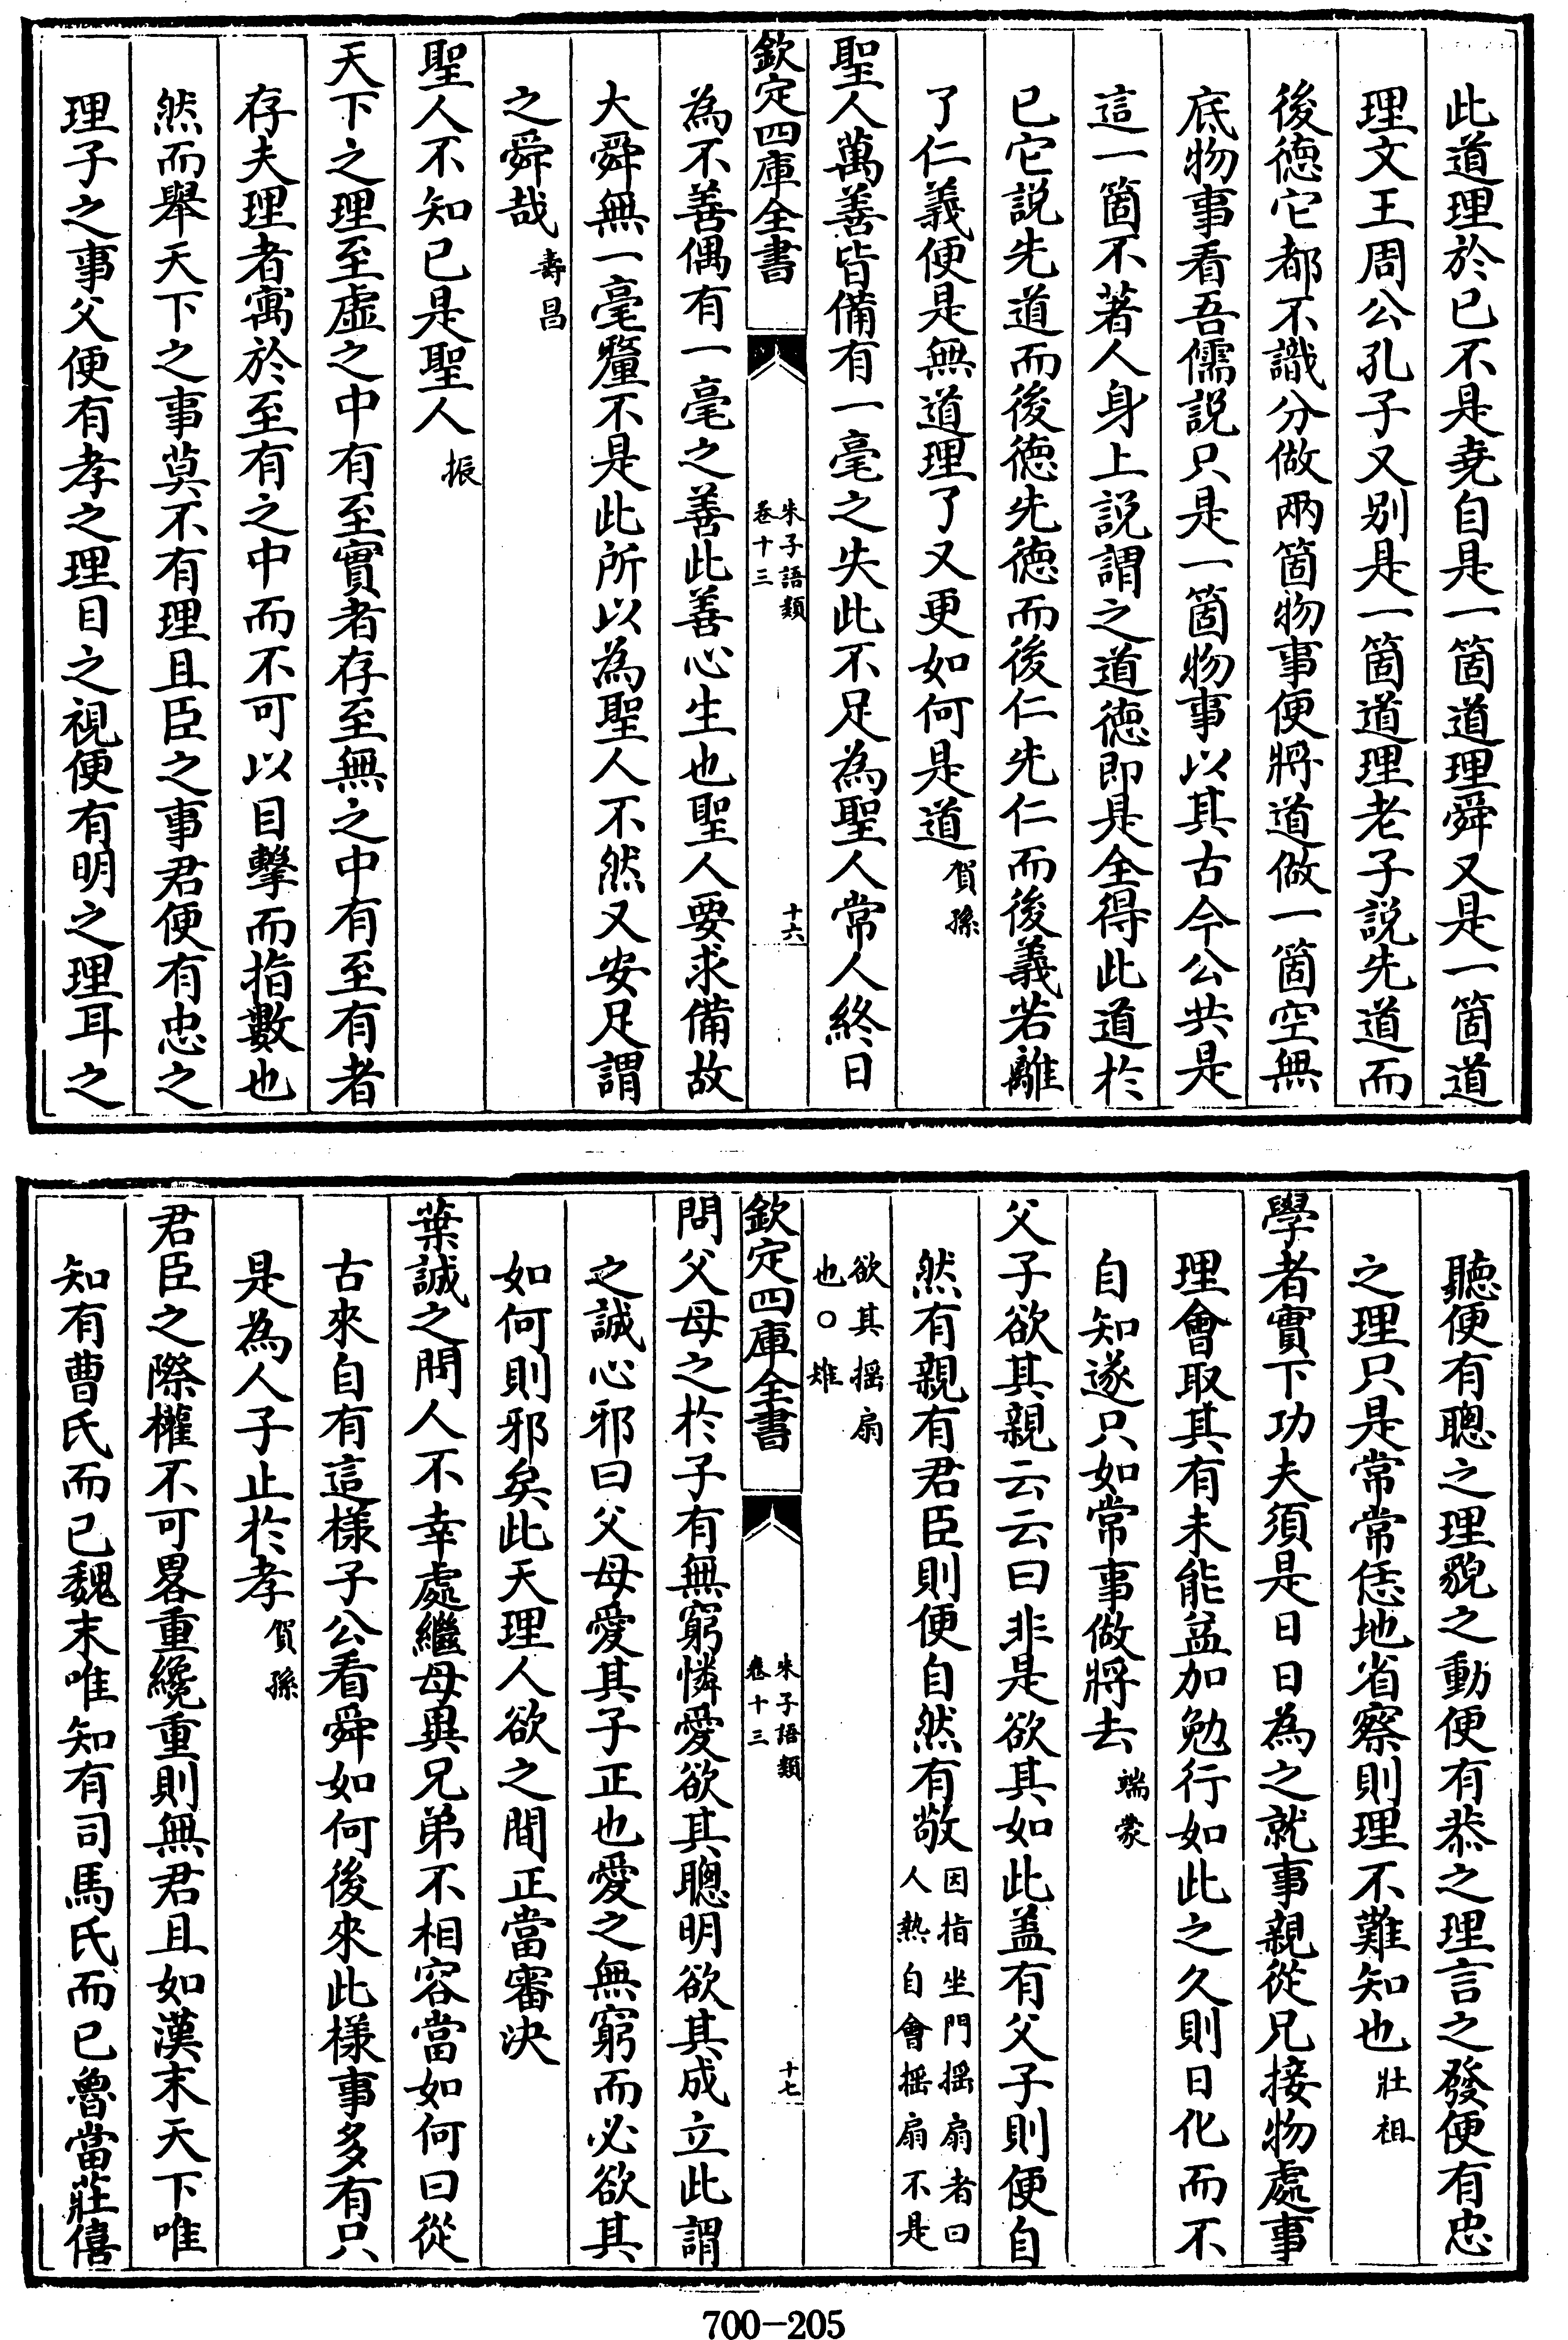 此道理於已不是堯自是一箇道理舜又是一箇道
理文王周公孔子又别是一箇道理老子説先道而
後徳它都不識分做兩箇物事便將道做一箇空無
底物事看吾儒説只是一箇物事以其古今公共是
這一箇不著人身上説謂之道徳即是全得此道於
已它説先道而後徳先徳而後仁先仁而後義若離
了仁義便是無道理了又更如何是道賀孫
聖人萬善皆備有一毫之失此不足為聖人常人終日
欽定四庫全書
朱子語類
卷十三
十六
為不善偶有一毫之善此善心生也聖人要求備故
大舜無一毫釐不是此所以為聖人不然又安足謂
之舜哉壽昌
聖人不知已是聖人振
天下之理至虛之中有至實者存至無之中有至有者
存夫理者寓於至有之中而不可以目擊而指數也
然而舉天下之事莫不有理且臣之事君便有忠之
理子之事父便有孝之理目之視便有明之理耳之
聽便有聰之理貌之動便有恭之理言之發便有忠
之理只是常常恁地省察則理不難知也壯祖
學者實下功夫須是日日為之就事親從兄接物處事
理會取其有未能益加勉行如此之久則日化而不
自知遂只如常事做將去端蒙
父子欲其親云云曰非是欲其如此蓋有父子則便自
然有親有君臣則便自然有敬因指坐門揺扇者曰
人熱自會揺扇不是
欲其揺扇
也○雉
欽定四庫全書
朱子語類
卷十三
十七
問父母之於子有無窮憐愛欲其聰明欲其成立此謂
之誠心邪曰父母愛其子正也愛之無窮而必欲其
如何則邪矣此天理人欲之間正當審決
葉誠之問人不幸處繼母異兄弟不相容當如何曰從
古來自有這樣子公看舜如何後來此樣事多有只
是為人子止於孝賀孫
君臣之際權不可畧重纔重則無君且如漢末天下唯
知有曹氏而已魏末唯知有司馬氏而已魯當莊僖
700-205